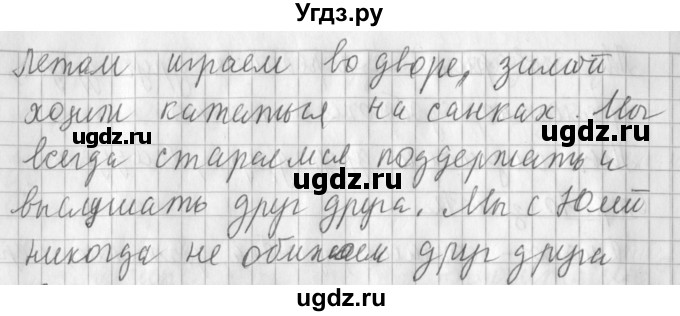 Угдз.ру
летом играем во дворе, зимой
ugdz.ru
ходим кататься на санках. Мы
ugdz.ru
всегда стараемся поддержать и
ugdz.ru
ugdz.ru
выслушать друг друга. Мы с Юлей
ugdz.ru
никогда не обижаем друг друга
ugdz.ru
ugdz.ru